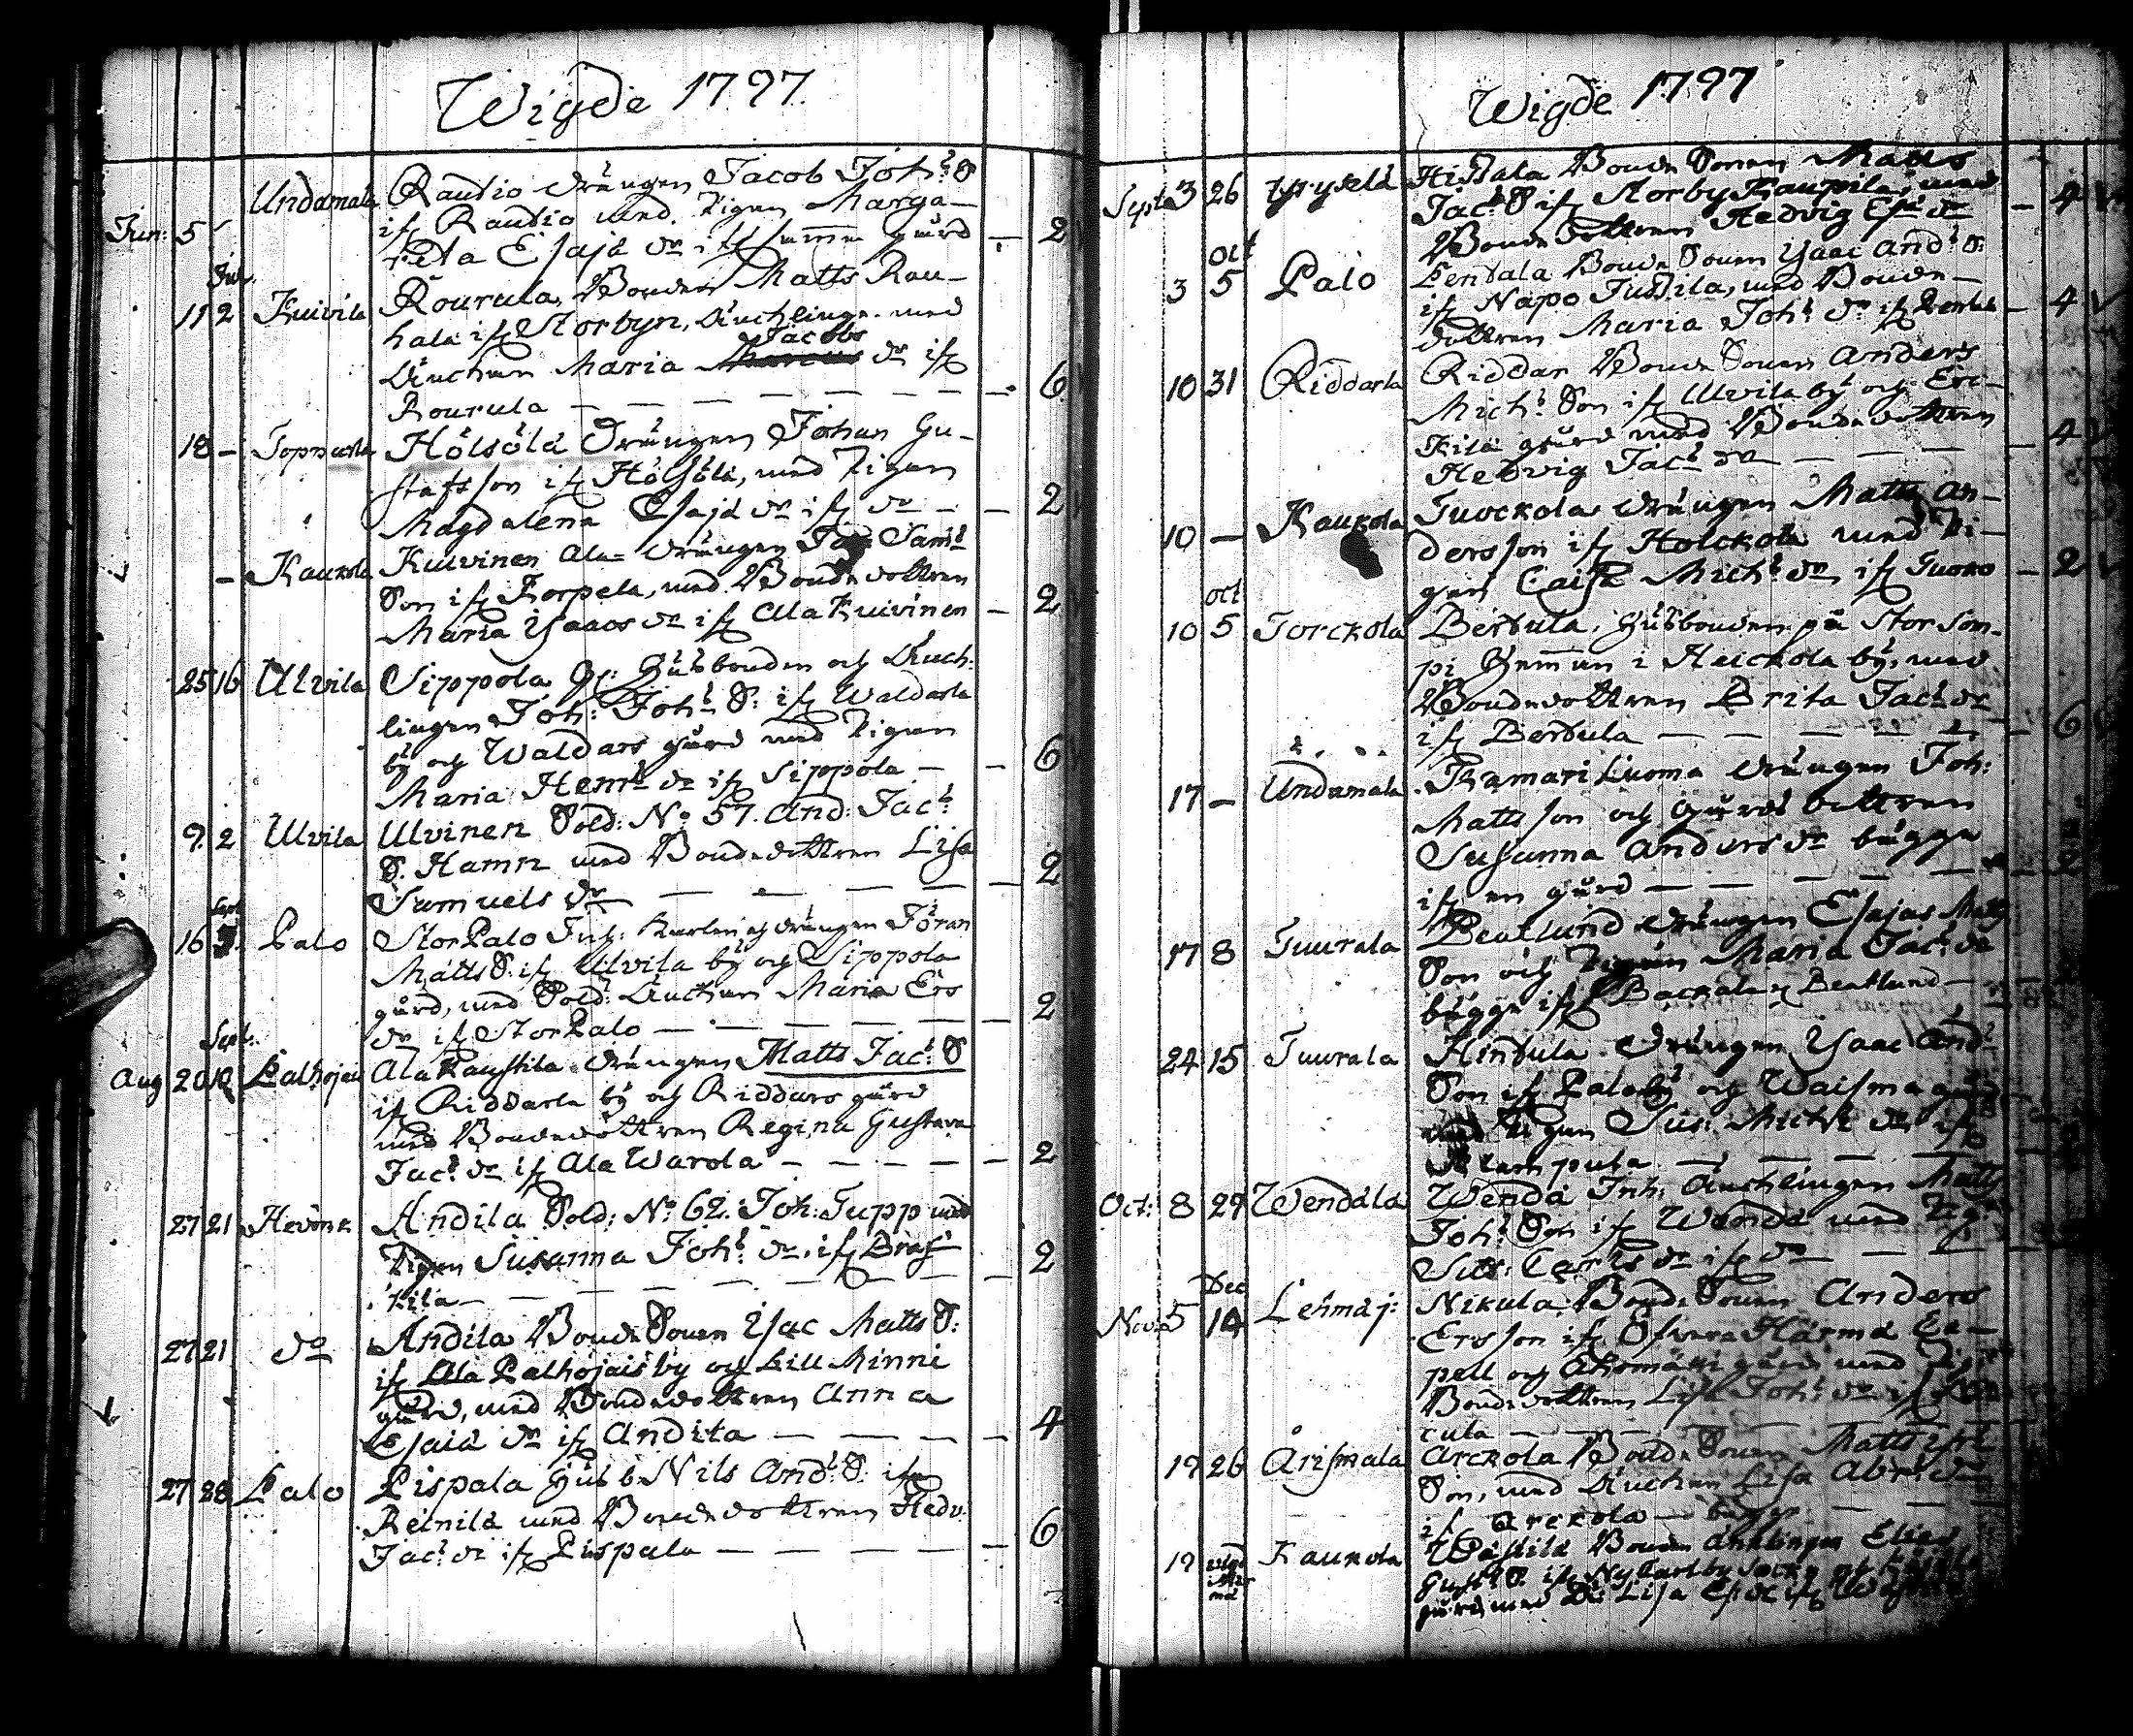 Wigde 1797.
Undamala Rautio drängen Jacob Joh: S
Jun: 5 ifr Rautio med Pigan Marga-
reta Esajæ dr ifr samma gård — 2
Jul.
11 2 Kuivila Rourula Bonden Matts Rau-
hala ifr Storbyn, Änchlingn med
Jacobs
Änchan Maria dr ifr
Rourula — — — — — — 6
18 — Topparla Hölsölä Drängen Johan Gu-
stafsson ifr Hölsölä, med Pigan
Magdalena Esajæ dr ifr do — — 2
— Kaukola Kuivinen Ala- drängen Saml
Son ifr Korpela, med Bondedottren
Maria Isaacs dr ifr Ala Kuivinen — 2
25 16 Ulvila Sippola Husbonden och Änch-
lingen Joh: Joh: S: ifr Waldarla
by och Waldars gård med Pigan
Maria Henr: dr ifr Sippola — — 6
9. 2 Ulvila Ulvinen Sold: No 57. And: Jac:
S. Hamn med Bondedottren Lisa
Samuels dr — — — — — 2
Sept
16 3. Palo StorPalo Inh: drängen Jöran
Matts S: ifr Ulvila by och Sippola
gård, med Sold: Änchan Maria Ers
dr ifr StorPalo — — — — — 2
Sept.
Aug 20 10 Palhojais Ala Kaustila drängen Matts Jac: S
ifr Riddarla by och Riddars gård
med Bondedottren Regina Gustava
Jac: dr ifr Ala Warola — — — — — 2
27 21 Andila Sold: No 62. Joh: Tupp med
Pigan Susanna Joh: dr. ifr
kila — — — — — — 2
27 21 do Andila BondeSonen Isac Matts S:
ifr Ala Palhojais by och Lill Minni
gård, med Bondedottren Anna
Esaiæ dr ifr Andila — — — — — 4
27 28 Palo Pispala Husb: Nils And: S. ifr
Reinilä med Bondedottren Hedv:
Jac: dr ifr Pispala — — — — — 6
Wigde 1797
Sept: 3 26 Hissala BondeSonen Matts
Jac: S ifr Storby Kaupila, med
Bondedottren Hedvig Esa dr — 4
Oct
3 5 Palo Pentala BondeSonen Isaac And: S:
ifr Napo Jussila, med Bonde-
dottren Maria Joh: dr ifr Pentala — 4
10 31 Riddarla Riddar BondeSonen Anders
Mich: Son ifr Ulvila by och Erc-
kila gård med Bondedottren
Hedvig Jac: dr — — — — — 4
10 — Kaukola Tuockola drängen Matts An-
dersson ifr Holckola med Pi-
gan Caisa Mich: dr ifr Tuoko — 2
oct
10 5 Torckola Bertula, Husbonden på StorSom-
pi Hemman i Heickola by, med
Bondedottren Brita Jac: dr
ifr Bertula — — — — — — 6
17 — Undamala Kamari Luoma drängen Joh:
Mattsson och Gårds dottren
Susanna Anders dr bägge
ifr en gård — — — — — 2
17 8 Tuurala Beatlund drängen Esajas Matts
Son och Pigan Maria Jac: dr
bägge ifr Backala Beatlund —
24 15 Tuurala Hintula Drängen Isaac And:
Son ifr Palo by och Waisma gård
med Pigan Sus: Mich: dr ifr
— — — —
Oct: 8 29 Wendälä Wendä Inh: Änchlingen Matts
Joh: Son ifr Wendä med Pig:
Sus: Carls dr ifr do — — —
Dec
Nov: 5 14 Lehmäj: Nikula BondeSonen Anders
Ersson ifr Öfvera Härmä Ca-
pell och gård med
Bondedottren Lisa Joh: dr ifr
cula — — —
19 26 Orismala Arckola BondeSonen Matts
Son, med Änchan Lisa Abr: dr
ifr Arckola — bägge — — —
19 Kaukola Wästilä Bonden Änklingen Elias
Gust: S. ifr Ny Carlby Socken och
gård med Lisa ifr